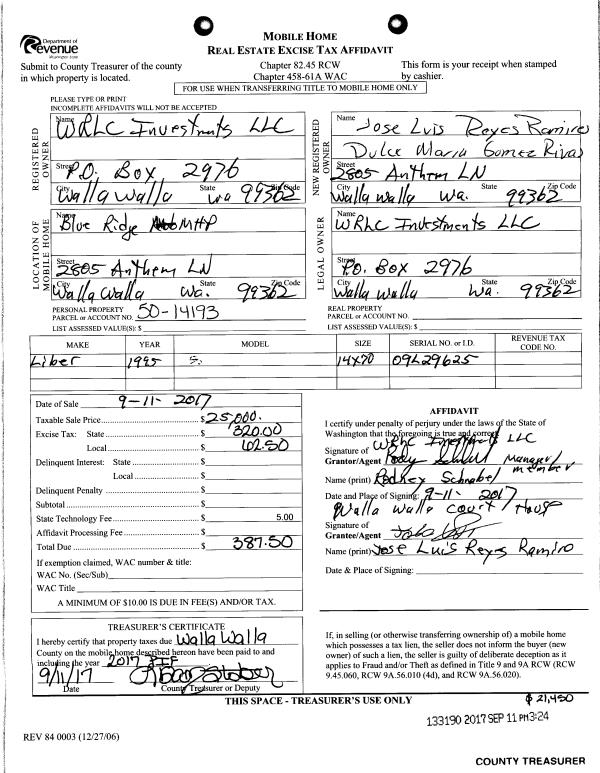 Department of
Revenue
Washington State
MOBILE HOME
REAL ESTATE EXCISE TAX AFFIDAVIT
Submit to County Treasurer of the county
in which property is located.
Chapter 82.45 RCW
Chapter 458-61A WAC
This form is your receipt when stamped
by cashier.
FOR USE WHEN TRANSFERRING TITLE TO MOBILE HOME ONLY
PLEASE TYPE OR PRINT
INCOMPLETE AFFIDAVITS WILL NOT BE ACCEPTED
REGISTERED OWNER
Name WRLC Investments LLC
Street P.O. Box 2976
City Walla Walla State Wa Zip Code 99362
NEW REGISTERED OWNER
Name Jose Luis Reyes Ramirez
Dulce Maria Gomez Rivas
Street 2805 Anthem LN
City Walla Walla State Wa. Zip Code 99362
LOCATION OF MOBILE HOME
Name Blue Ridge MHP
Street 2805 Anthem LN
City Walla Walla State Wa. Zip Code 99362
LEGAL OWNER
Name WRLC Investments LLC
Street P.O. Box 2976
City Walla Walla State Wa. Zip Code 99362
PERSONAL PROPERTY
PARCEL or ACCOUNT NO. 50-14193
LIST ASSESSED VALUE(S): $
REAL PROPERTY
PARCEL or ACCOUNT NO.
LIST ASSESSED VALUE(S): $
MAKE YEAR MODEL SIZE SERIAL NO. or I.D. REVENUE TAX CODE NO.
Liber 1995 14x70 09L29625
Date of Sale 9-11-2017
Taxable Sale Price $ 25,000.
Excise Tax: State $ 320.00
Local $ 62.50
Delinquent Interest: State $
Local $
Delinquent Penalty $
Subtotal $
State Technology Fee $ 5.00
Affidavit Processing Fee $
Total Due $ 387.50
If exemption claimed, WAC number & title:
WAC No. (Sec/Sub)
WAC Title
A MINIMUM OF $10.00 IS DUE IN FEE(S) AND/OR TAX.
AFFIDAVIT
I certify under penalty of perjury under the laws of the State of
Washington that the foregoing is true and correct.
WRLC Investments LLC
Signature of
Grantor/Agent Manager/
member
Name (print) Rodney Schnabel
Date and Place of Signing: 9-11-2017
Walla Walla Court House
Signature of
Grantee/Agent
Name (print) Jose Luis Reyes Ramiro
Date & Place of Signing:
TREASURER'S CERTIFICATE
I hereby certify that property taxes due Walla Walla
County on the mobile home described hereon have been paid to and
including the year 2017 PIF
9/11/17
Date County Treasurer or Deputy
If, in selling (or otherwise transferring ownership of) a mobile home
which possesses a tax lien, the seller does not inform the buyer (new
owner) of such a lien, the seller is guilty of deliberate deception as it
applies to Fraud and/or Theft as defined in Title 9 and 9A RCW (RCW
9.45.060, RCW 9A.56.010 (4d), and RCW 9A.56.020).
THIS SPACE - TREASURER'S USE ONLY
$ 21,450
133190 2017 SEP 11 PM 3:24
REV 84 0003 (12/27/06)
COUNTY TREASURER